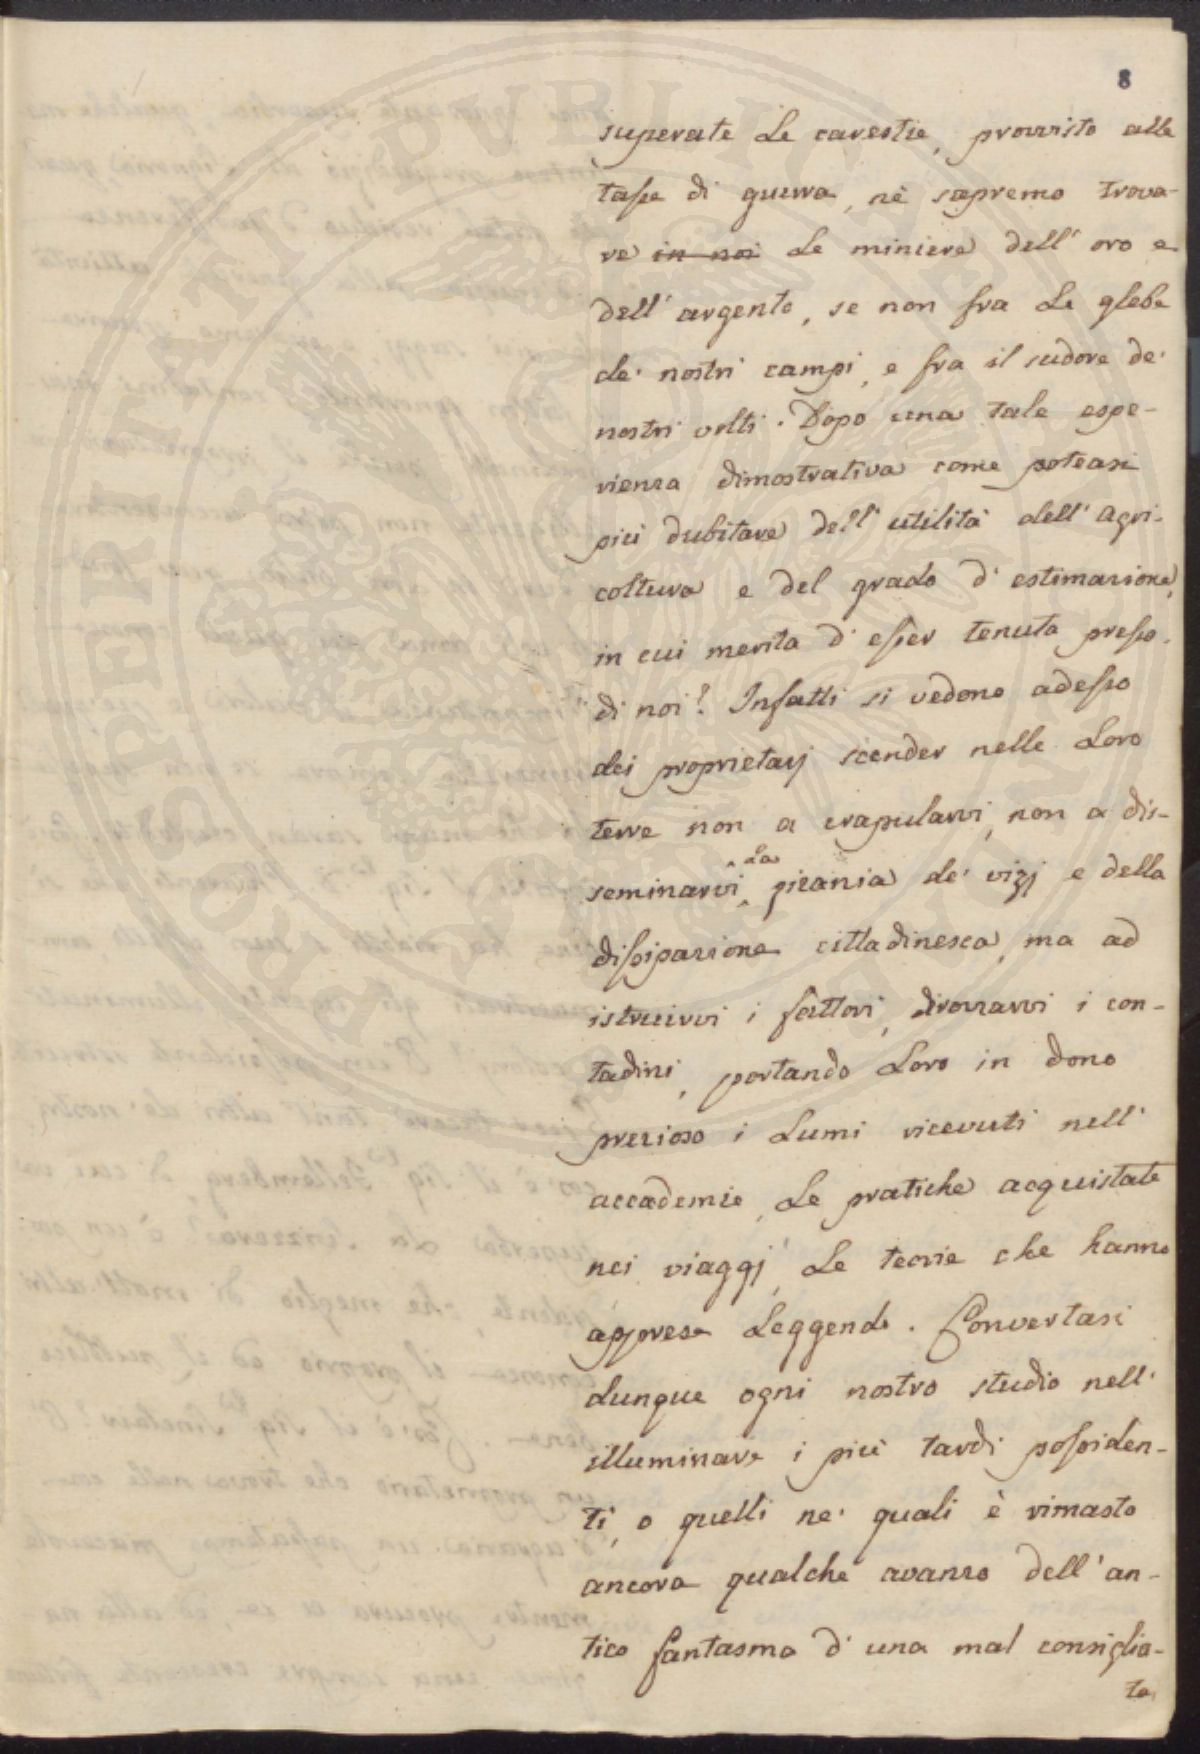 8
superate le carestie, provvisto alle
tasse di guerra, nè sapremo trova-
re in noi le miniere dell' oro e
dell' argento, se non fra le glebe
de' nostri campi, e fra il sudore de'
nostri volti. Dopo una tale espe-
rienza dimostrativa come poteasi
più dubitare dell' utilità dell' Agri-
coltura e del grado d' estimazione,
in cui merita d' esser tenuta presso
di noi? Infatti si vedono adesso
dei proprietarj scender nelle loro
terre non a crapularvi, non a dis-
seminarvi la zizania de' vizj e della
dissipazione cittadinesca, ma ad
istruirvi i fattori, dirozzarvi i con-
tadini, portando loro in dono
prezioso i lumi ricevuti nell'
accademie, le pratiche acquistate
nei viaggj, le teorie che hanno
apprese leggendo. Convertasi
dunque ogni nostro studio nell'
illuminare i più tardi possiden-
ti, o quelli ne' quali è rimasto
ancora qualche avanzo dell' an-
tico fantasma d' una mal consiglia-
ta
PROSPERITATI PUBLICAE